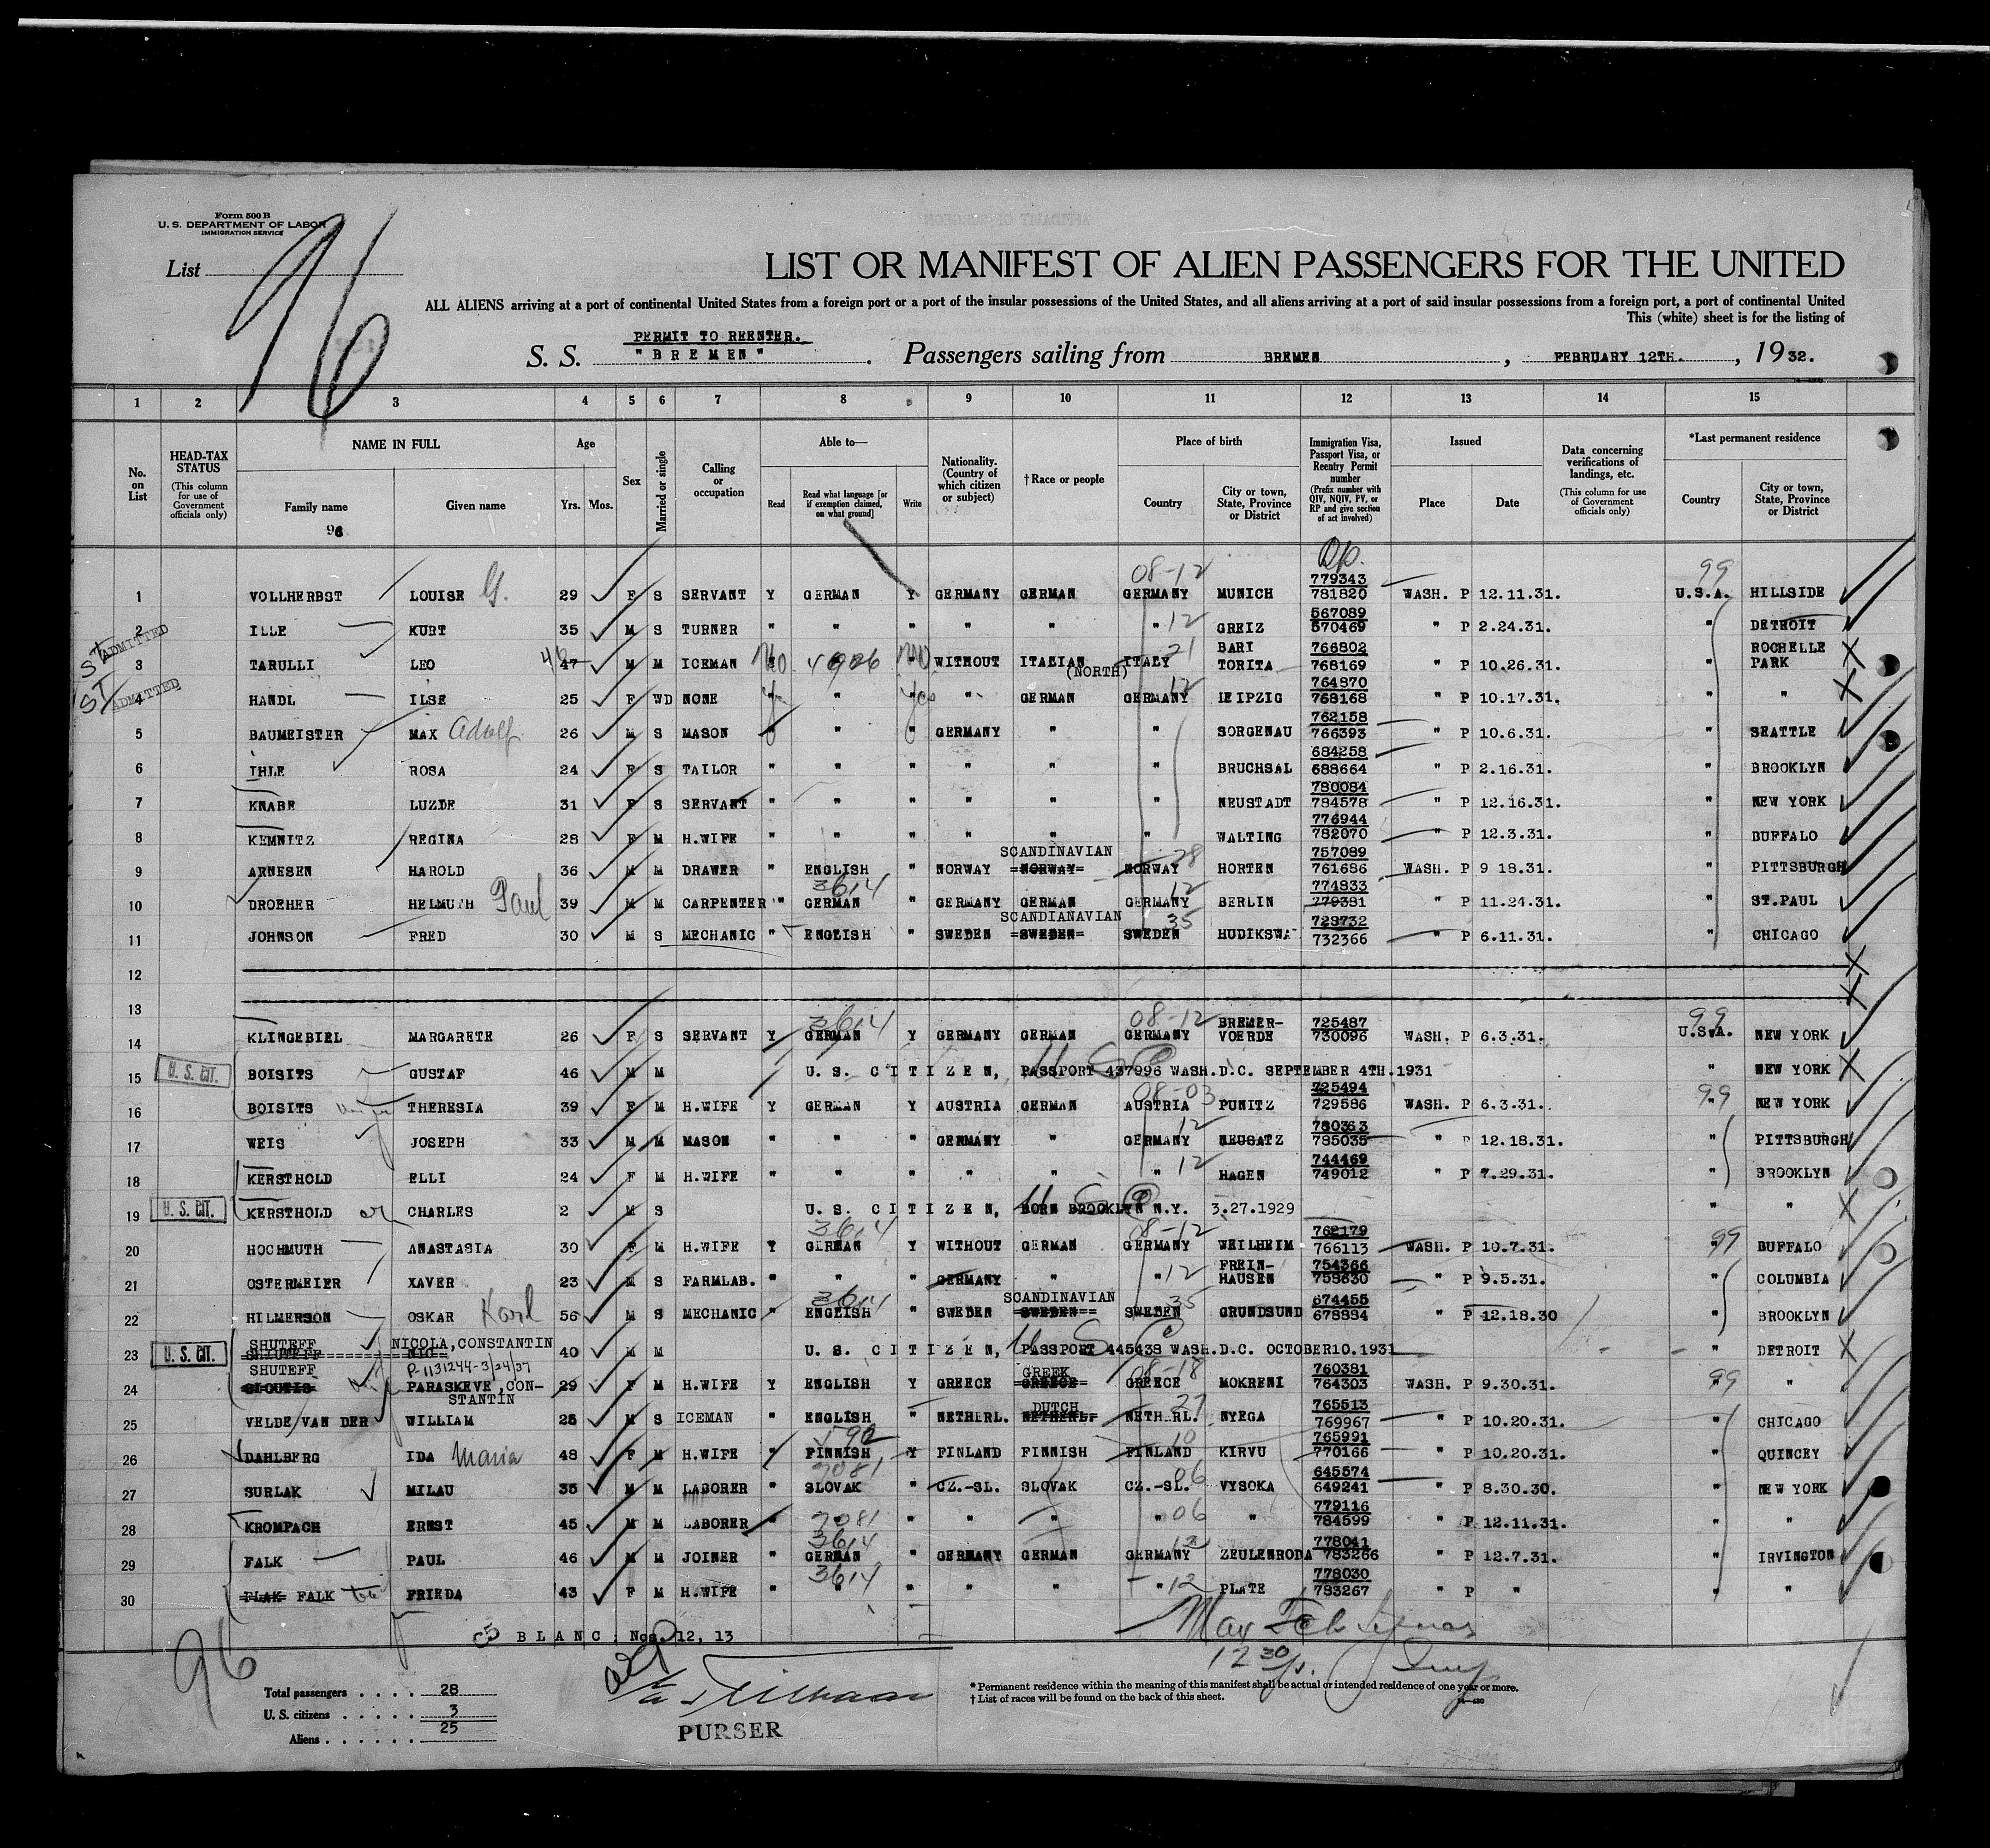 Form 500 B
U. S. DEPARTMENT OF LABOR
IMMIGRATION SERVICE
List
96
LIST OR MANIFEST OF ALIEN PASSENGERS FOR THE UNITED
ALL ALIENS arriving at a port of continental United States from a foreign port or a port of the insular possessions of the United States, and all aliens arriving at a port of said insular possessions from a foreign port, a port of continental United
This (white) sheet is for the listing of
PERMIT TO REENTER.
S. S. "BREMEN". Passengers sailing from BREMEN, FEBRUARY 12TH., 1932.
1 2 3 4 5 6 7 8 9 10 11 12 13 14 15
No. on List
HEAD-TAX STATUS (This column for use of Government officials only)
NAME IN FULL
Family name
96
Given name
Age
Yrs. Mos.
Sex
Married or single
Calling or occupation
Able to—
Read
Read what language [or if exemption claimed, on what ground]
Write
Nationality. (Country of which citizen or subject)
†Race or people
Place of birth
Country
City or town, State, Province or District
Immigration Visa, Passport Visa, or Reentry Permit number (Prefix number with QIV, NQIV, PV, or RP and give section of act involved)
Issued
Place
Date
Data concerning verifications of landings, etc. (This column for use of Government officials only)
*Last permanent residence
Country
City or town, State, Province or District
08-12 99
1 VOLLHERBST LOUISE G. 29 F S SERVANT Y GERMAN Y GERMANY GERMAN GERMANY MUNICH 779343 781820 WASH. P 12.11.31. U.S.A. HILLSIDE
2 ILLE KURT 35 M S TURNER " " " " " " 12 GREIZ 567089 570469 " P 2.24.31. " DETROIT
ST ADMITTED
3 TARULLI LEO 47 M M ICEMAN No No WITHOUT ITALIAN (NORTH) ITALY 21 BARI TORITA 766802 768169 " P 10.26.31. " ROCHELLE PARK X
ST ADMITTED
4 HANDL ILSE 25 F WD NONE " Yes " GERMAN GERMANY 12 LEIPZIG 764870 768168 " P 10.17.31. " " X
5 BAUMEISTER MAX Adolf 26 M S MASON " " GERMANY " " SORGENAU 762158 766393 " P 10.6.31. " SEATTLE
6 IHLE ROSA 24 F S TAILOR " " " " " " BRUCHSAL 684258 688664 " P 2.16.31. " BROOKLYN
7 KNABE LUZDE 31 F S SERVANT " " " " " " NEUSTADT 780084 784578 " P 12.16.31. " NEW YORK
8 KEMNITZ REGINA 28 F M H.WIFE " " " " " " WALTING 776944 782070 " P 12.3.31. " BUFFALO
9 ARNESEN HAROLD 36 M M DRAWER " ENGLISH " NORWAY SCANDINAVIAN NORWAY NORWAY 28 HORTEN 757089 761686 WASH. P 9 18.31. " PITTSBURGH
10 DROEHER HELMUTH Paul 39 M M CARPENTER " 3614 GERMAN " GERMANY GERMAN GERMANY 12 BERLIN 774833 779381 " P 11.24.31. " ST.PAUL
11 JOHNSON FRED 30 M S MECHANIC " ENGLISH " SWEDEN SCANDIANAVIAN SWEDEN SWEDEN 35 728732 732366 " P 6.11.31. " CHICAGO
12 X
13 X
14 KLINGEBIEL MARGARETE 26 F S SERVANT Y 3614 GERMAN Y GERMANY GERMAN 08-12 GERMANY BREMER- VOERDE 725487 730096 WASH. P 6.3.31. 99 U.S.A. NEW YORK
15 U. S. CIT. BOISITS GUSTAF 46 M M U. S. CITIZEN, PASSPORT 437996 WASH.D.C. SEPTEMBER 4TH.1931 " NEW YORK X
16 BOISITS THERESIA 39 F M H.WIFE Y GERMAN Y AUSTRIA GERMAN 08-03 AUSTRIA PUNITZ 725494 729586 WASH. P 6.3.31. 99 " NEW YORK
17 WEIS JOSEPH 33 M M MASON " " " GERMANY " 12 GERMANY NEUSATZ 780363 785035 " P 12.18.31. " PITTSBURGH
18 KERSTHOLD ELLI 24 F M H.WIFE " " " " " " 12 HAGEN 744469 749012 " P 7.29.31. " BROOKLYN
19 U. S. CIT. KERSTHOLD CHARLES 2 M S U. S. CITIZEN, BORN BROOKLYN N.Y. 3.27.1929 " " X
20 HOCHMUTH ANASTASIA 30 F M H.WIFE Y 3614 GERMAN Y WITHOUT GERMAN 08-12 GERMANY WEILHEIM 762179 766113 WASH. P 10.7.31. 99 " BUFFALO
21 OSTERMEIER XAVER 23 M S FARMLAB. " " " GERMANY " " 12 FREIN- HAUSEN 754366 758630 " P 9.5.31. " COLUMBIA
22 HILMERSON OSKAR Karl 56 M S MECHANIC " 3614 ENGLISH " SWEDEN SCANDINAVIAN SWEDEN SWEDEN 35 GRUNDSUND 674455 678884 " P 12.18.30 " BROOKLYN
23 U. S. CIT. SHUTEFF NICOLA, CONSTANTIN 40 M M U. S. CITIZEN, PASSPORT 445438 WASH.D.C. OCTOBER10.1931 " DETROIT X
R-1131244-3/24/37
24 SHUTEFF PARASKEVE, CON- STANTIN 29 F M H.WIFE Y ENGLISH Y GREECE GREEK GREECE 08-18 GREECE MOKRENI 760381 764303 WASH. P 9.30.31. 99 " "
25 VELDE VAN DER WILLIAM 25 M S ICEMAN " ENGLISH " NETHERL. DUTCH NETHERL. NETHERL. 27 NYEGA 765513 769967 " P 10.20.31. " CHICAGO
26 DAHLBERG IDA Maria 48 F M H.WIFE " FINNISH Y FINLAND FINNISH FINLAND 10 KIRVU 765991 770166 " P 10.20.31. " QUINCEY
27 SURLAK MILAU 35 M M LABORER " 7081 SLOVAK " CZ.-SL. SLOVAK CZ.-SL. 06 VYSOKA 645574 649241 " P 8.30.30. " NEW YORK
28 KROMPACH ERNST 45 M M LABORER " 7081 " " " " " 06 " 779116 784599 " P 12.11.31. " "
29 FALK PAUL 46 M M JOINER " 3614 GERMAN " GERMANY GERMAN GERMANY 12 ZEULENRODA 778041 783266 " P 12.7.31. " IRVINGTON
30 FLAK FALK FRIEDA 43 M F H.WIFE " 3614 " " " " " 12 PLATE 778030 783267 " P " " "
BLANC: Nos. 12, 13
96
Total passengers . . . . 28
U. S. citizens . . . . . 3
Aliens . . . . . . 25
PURSER
12 30
* Permanent residence within the meaning of this manifest shall be actual or intended residence of one year or more.
† List of races will be found on the back of this sheet.